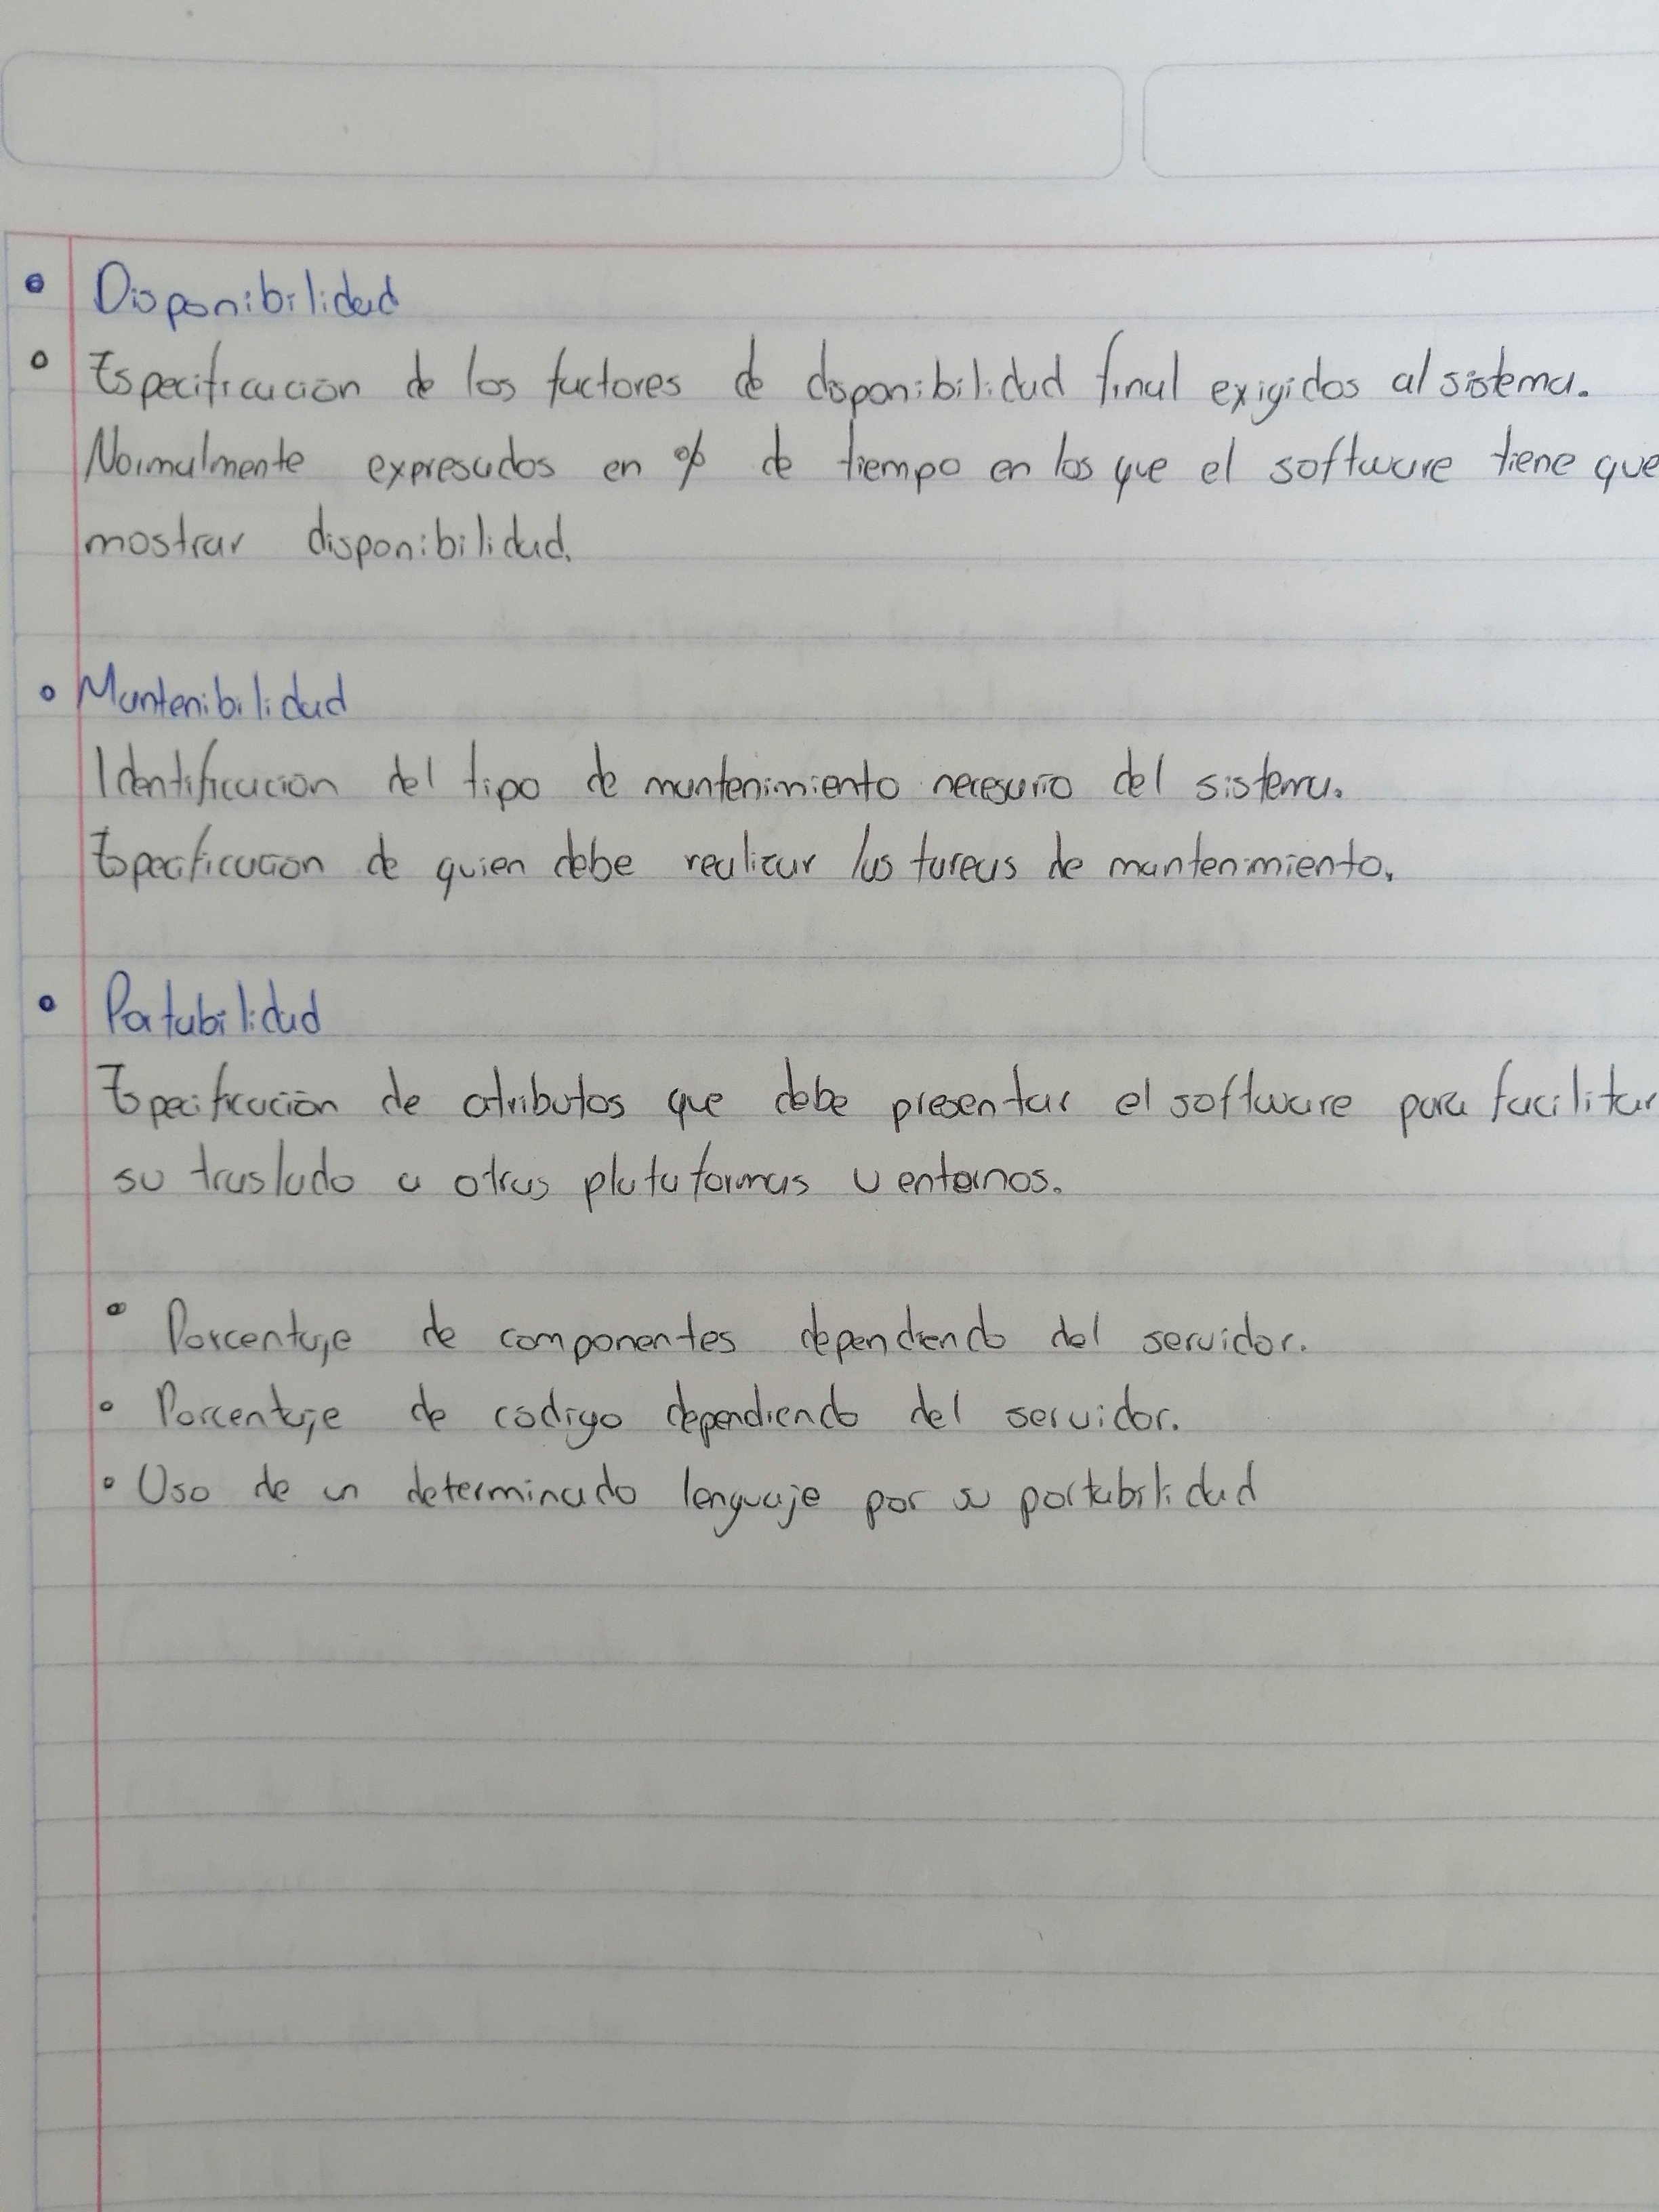 • Disponibilidad
• Especificación de los factores de disponibilidad final exigidos al sistema.
Normalmente expresados en % de tiempo en los que el software tiene que
mostrar disponibilidad.
• Mantenibilidad
Identificación del tipo de mantenimiento necesario del sistema.
Especificación de quien debe realizar las tareas de mantenimiento.
• Portabilidad
Especificación de atributos que debe presentar el software para facilitar
su traslado a otras plataformas u entornos.
• Porcentaje de componentes dependiendo del servidor.
• Porcentaje de código dependiendo del servidor.
• Uso de un determinado lenguaje por su portabilidad